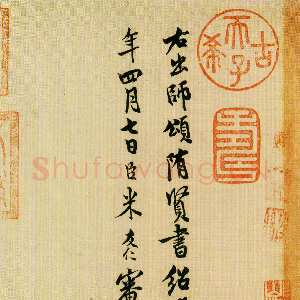 右出師頌隋賢書紹
年四月七日臣米友仁審
古希天子
Shufawang.CN